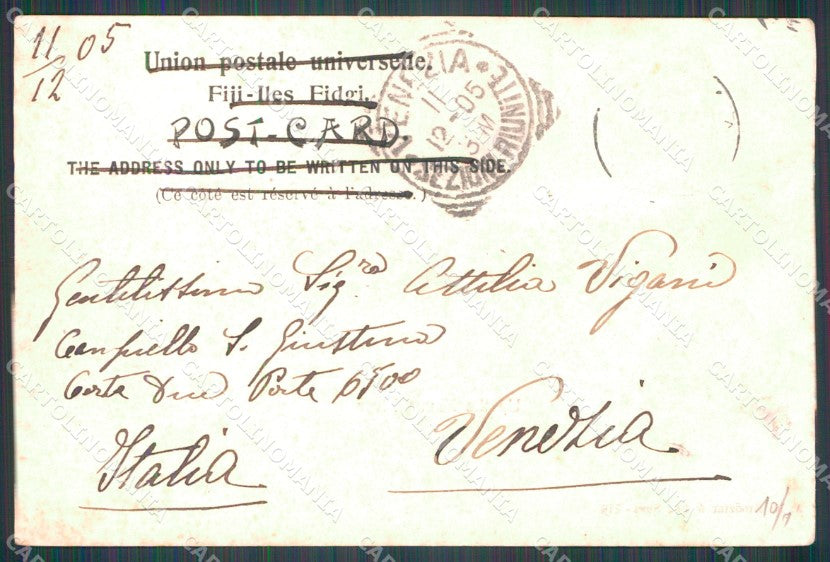 11 05
12
Union postale universelle.
Fiji-Iles Fidgi.
POST-CARD.
THE ADDRESS ONLY TO BE WRITTEN ON THIS SIDE.
(Ce côté est réservé à l'adresse.)
VENEZIA
11
12-05
Gentilissima Sig.ra Attilia Vigani
Campiello S. Giustina
Corte Due Porte 6500
Venezia
Italia
10/1
CARTOLINOMANIA